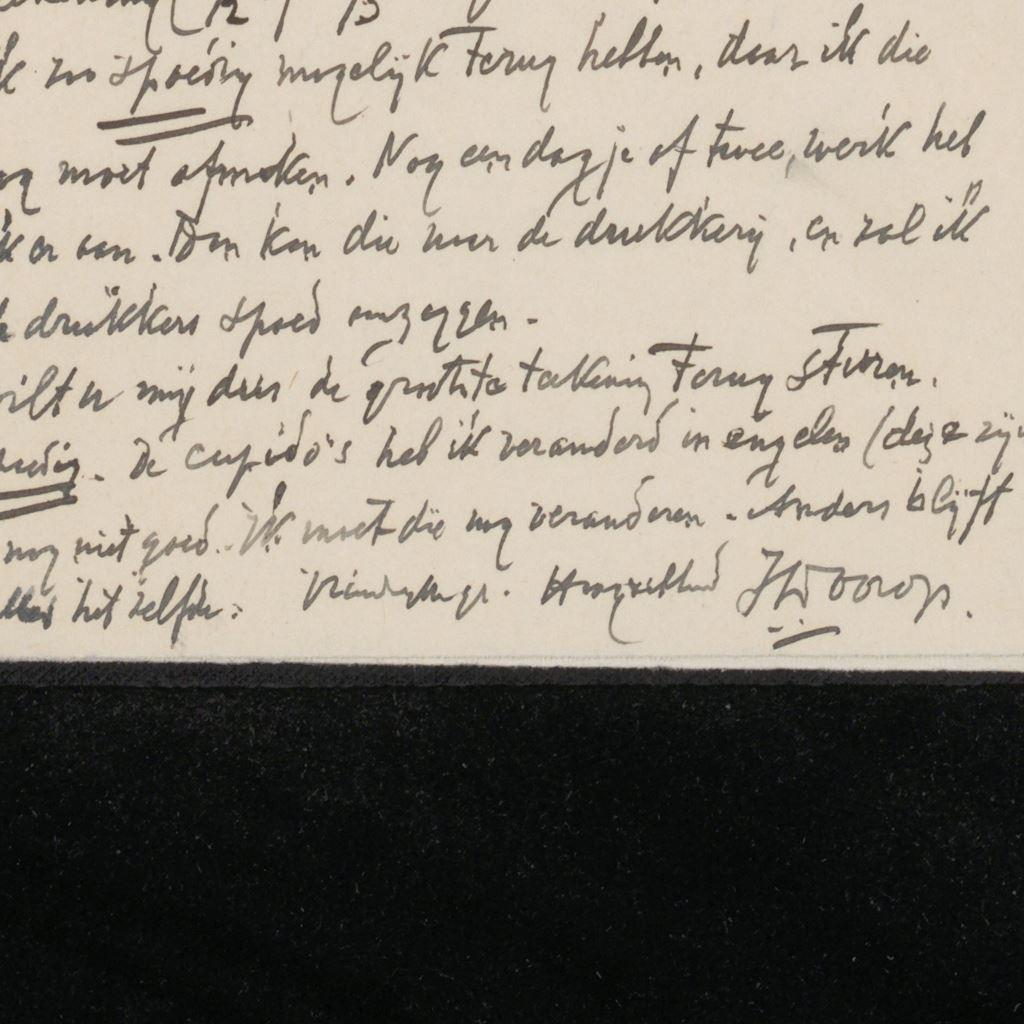 ik zoo spoedig mogelijk terug hebben, daar ik die
nog moet afmaken. Nog een dagje of twee, werk heb
ik er aan. Dan kan die naar de drukkerij, en zal ik
de drukkers spoed aanzeggen.
wilt u mij dus de grootste teekening terug sturen.
spoedig. De cupido's heb ik veranderd in engelen (deze zijn
nog niet goed. Ik moet die nog veranderen. Anders blijft
alles het zelfde. Vriendelijk gr. Hoogachtend JThToorop.